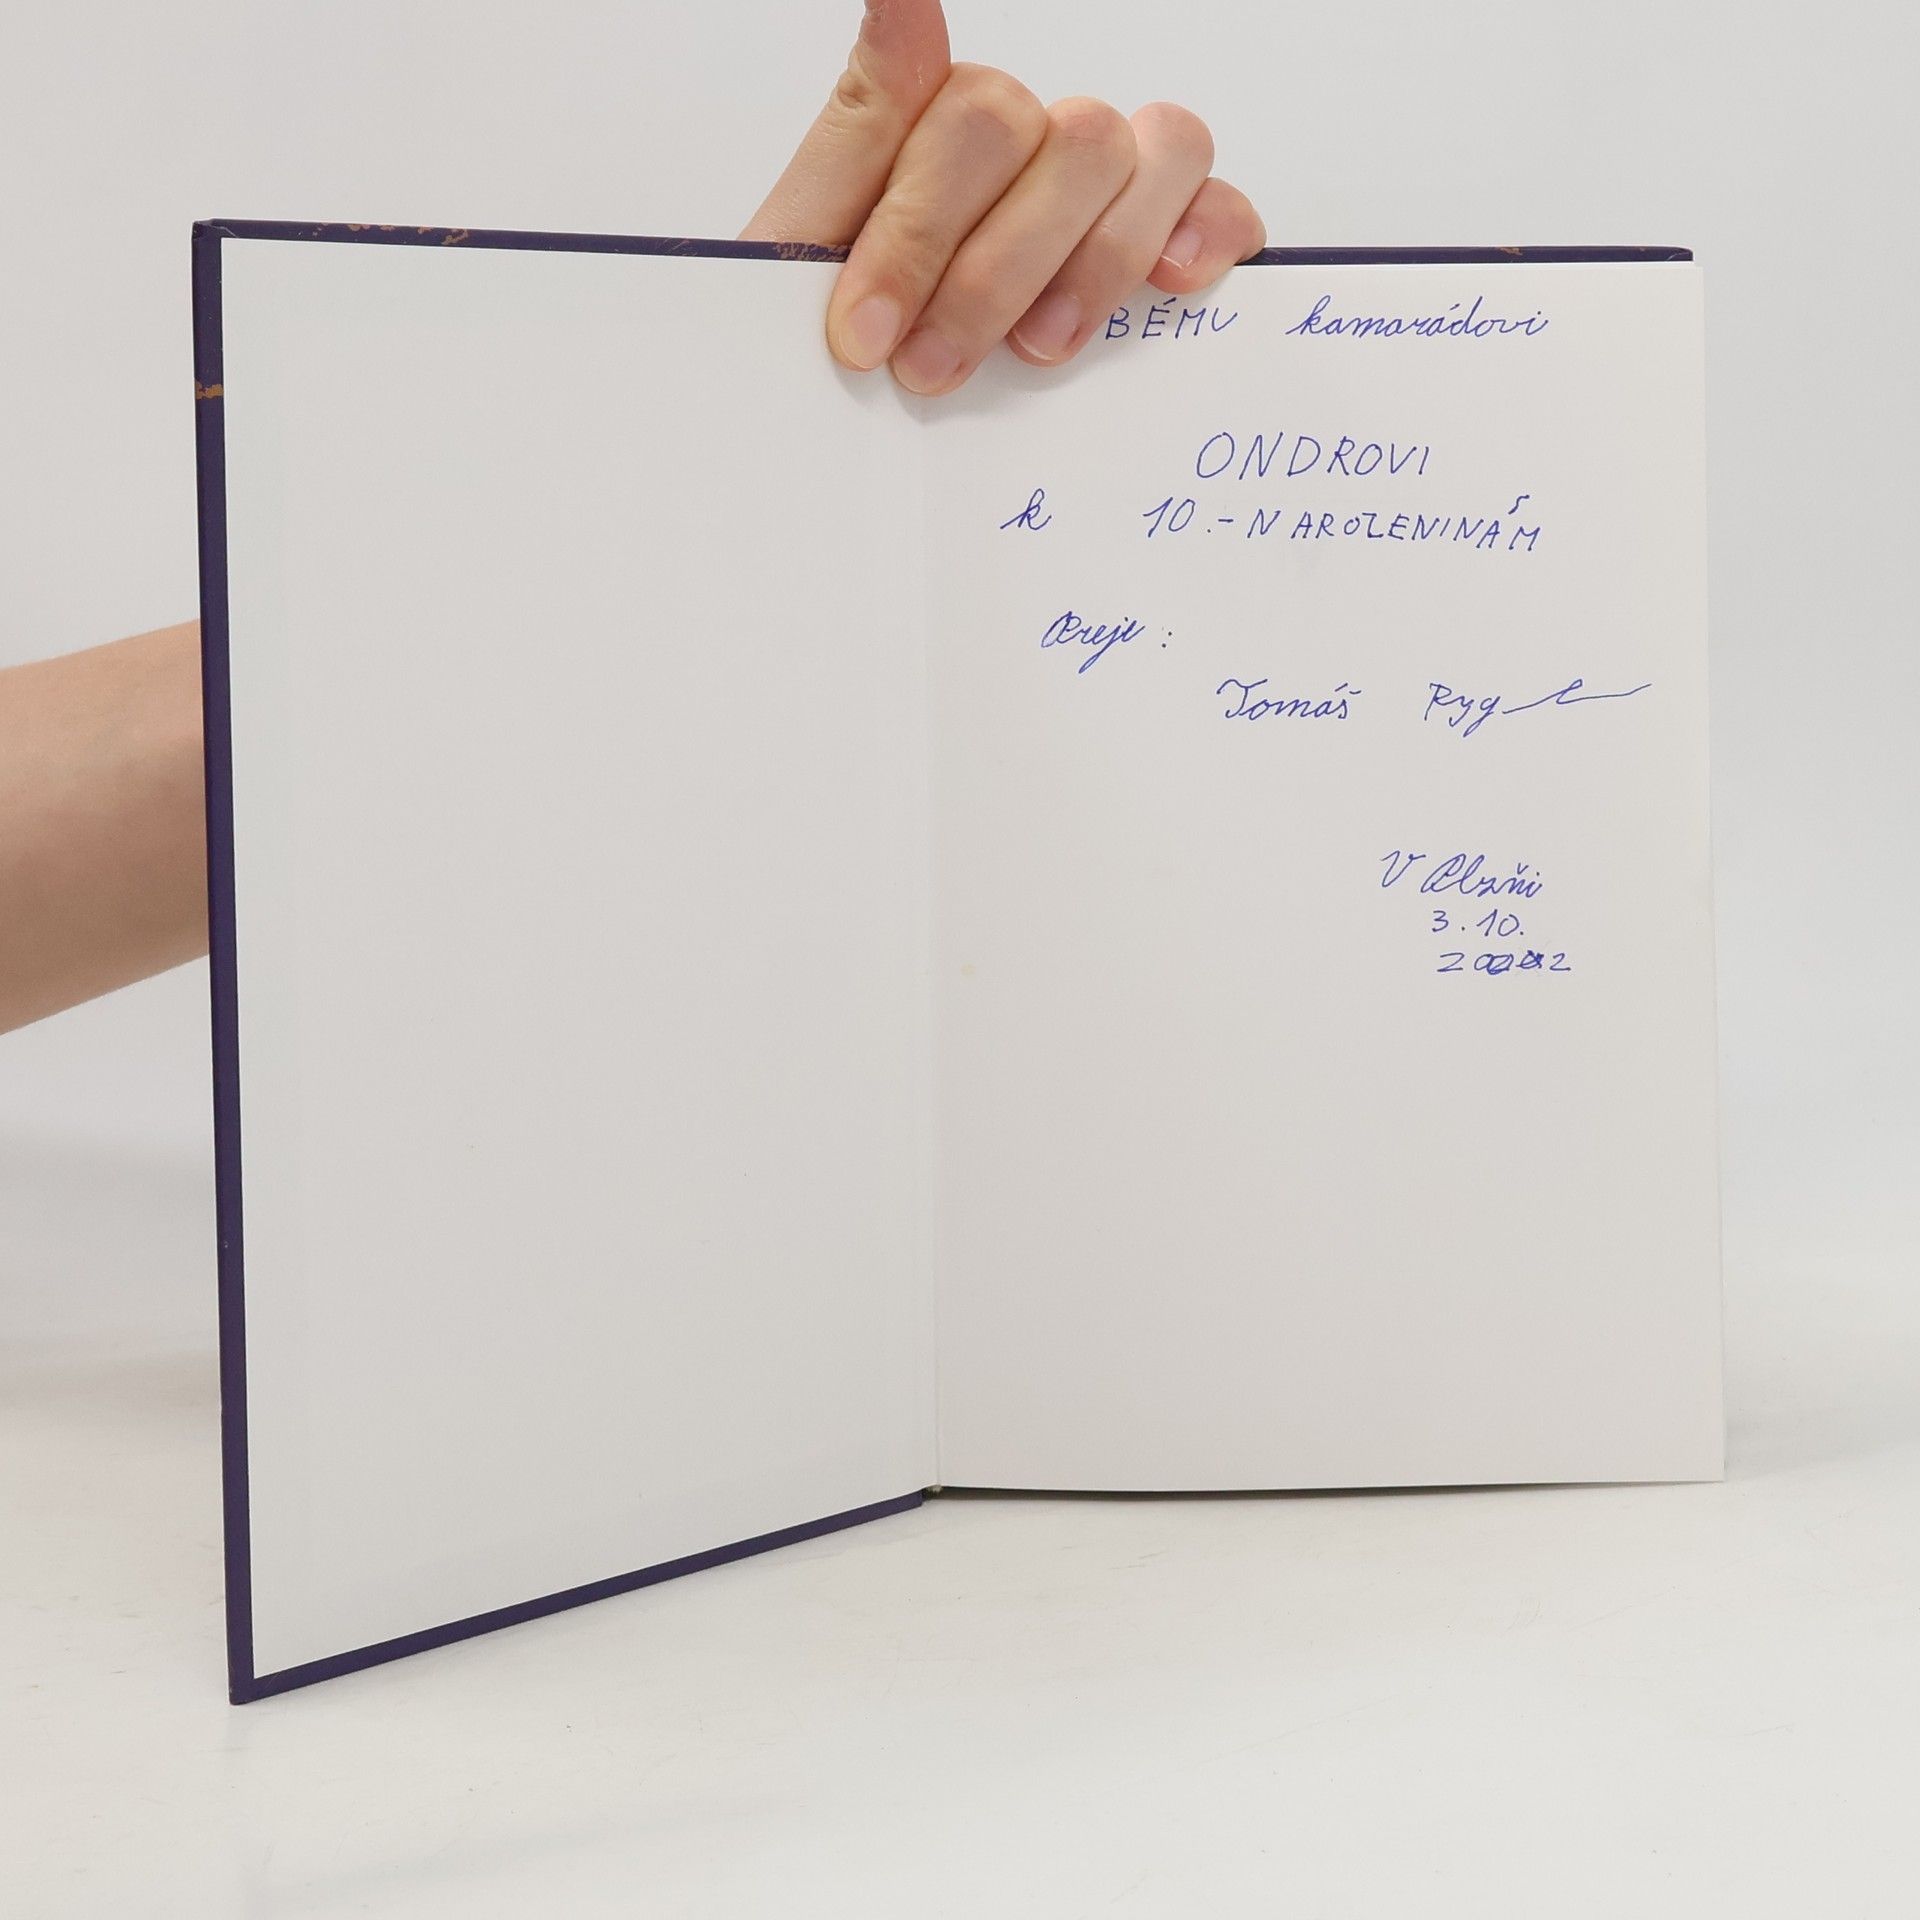 BÉMU kamarádovi
ONDROVI
k 10.-NAROZENINÁM
Přeje:
Tomáš
V Plzňi
3.10.